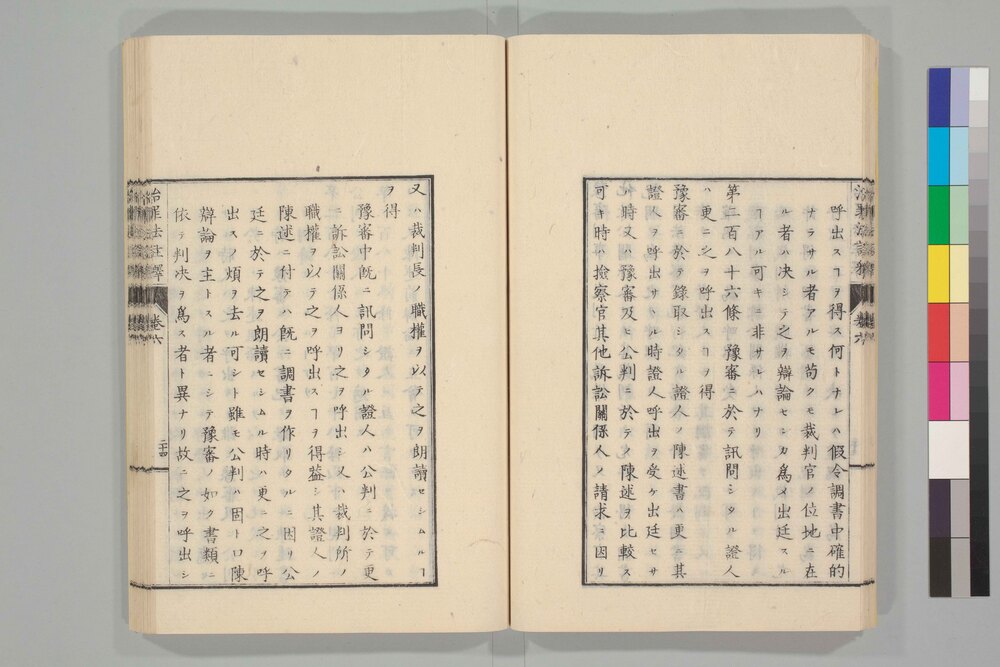 呼出スヿヲ得ス何トナレハ假令調書中確的
ナラサル者アルモ苟クモ裁判官ノ位地ニ在
ル者ハ决シテ之ヲ辯論セシカ爲メ出廷スル
ヿアル可キニ非サレハナリ
第二百八十六條 豫審ニ於テ訊問シタル證人
ハ更ニ之ヲ呼出スヿヲ得
豫審ニ於テ錄取シタル證人ノ陳述書ハ更ニ其
證人ヲ呼出サヽル時證人呼出ヲ受ケ出廷セサ
ル時又ハ豫審及ヒ公判ニ於テノ陳述ヲ比較ス
可キ時ハ撿察官其他訴訟關係人ノ請求ニ因リ
又ハ裁判長ノ職權ヲ以テ之ヲ朗讀セシムルヿ
ヲ得
豫審中旣ニ訊問シタル證人ハ公判ニ於テ更
ニ訴訟關係人ヨリ之ヲ呼出シ又ハ裁判所ノ
職權ヲ以テ之ヲ呼出スヿヲ得盖シ其證人ノ
陳述ニ付テハ旣ニ調書ヲ作リタルニ因リ公
廷ニ於テ之ヲ朗讀セシムル時ハ更ニ之ヲ呼
出スノ煩ヲ去ル可シト雖モ公判ハ固ト口陳
辯論ヲ主トスル者ニシテ豫審ノ如ク書類ニ
依テ判决ヲ爲ス者ト異ナリ故ニ之ヲ呼出シ
治罪法註釋 卷六